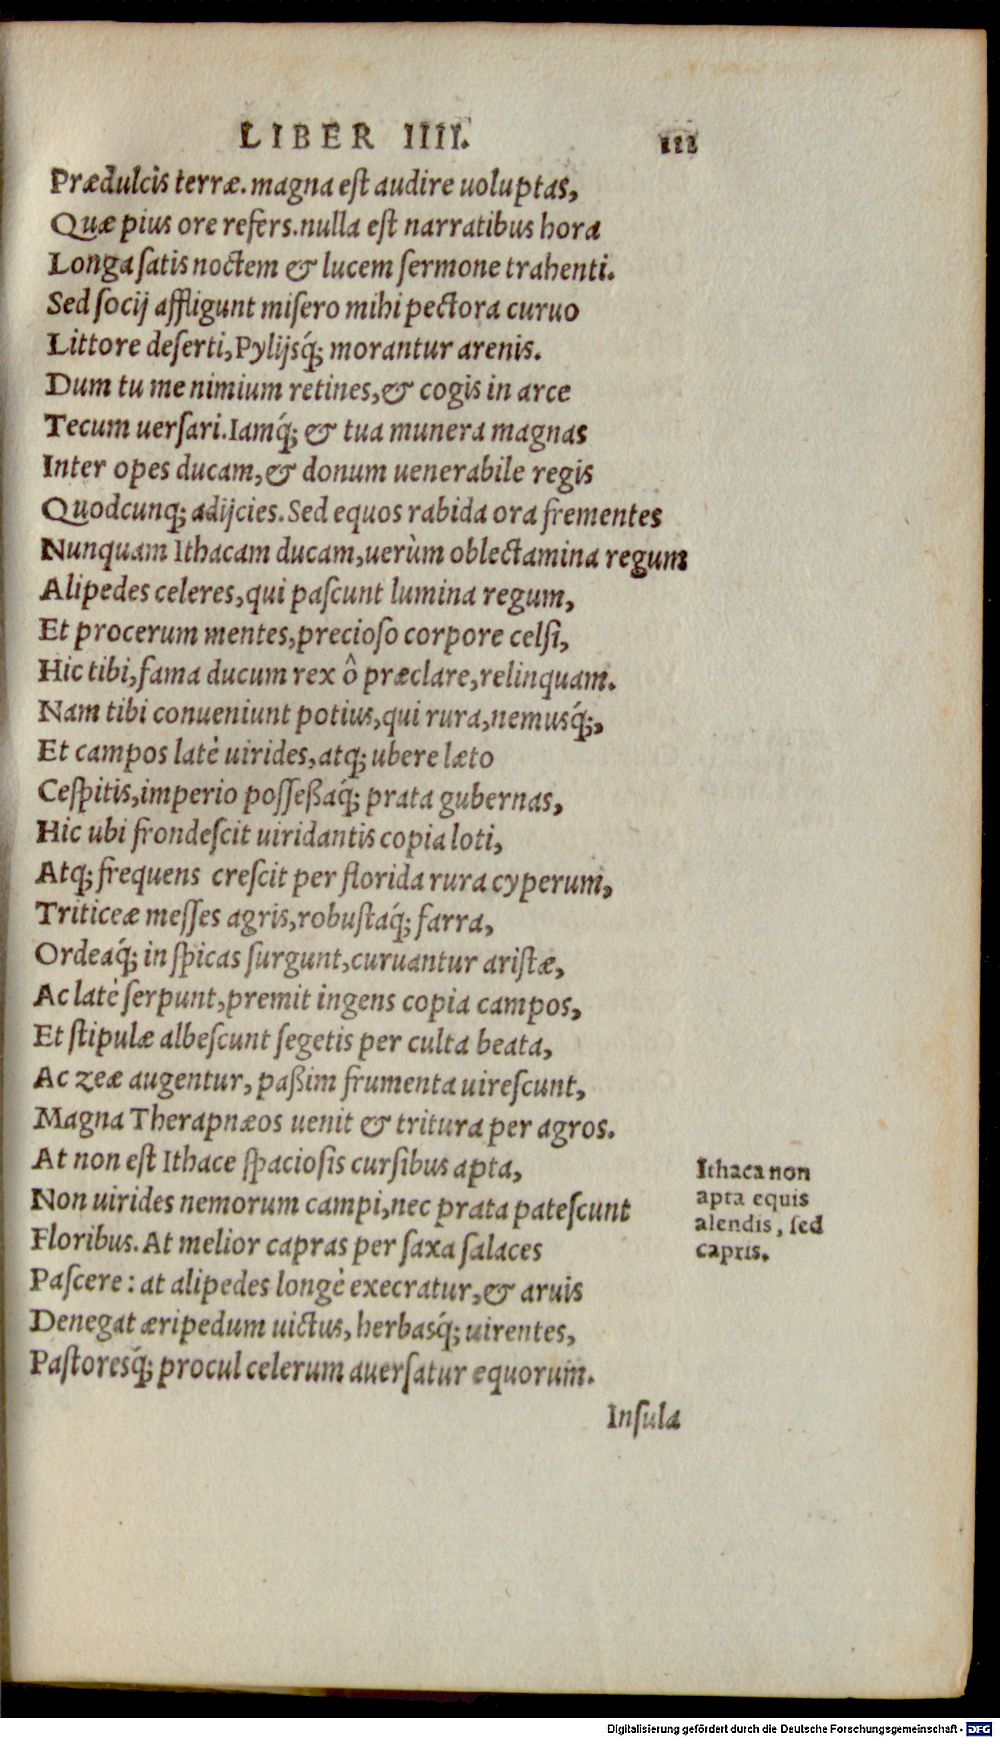 LIBER IIII. 111
Prædulcis terræ. magna eſt audire uoluptas,
Quæ pius ore refers. nulla eſt narratibus hora
Longa ſatis noctem & lucem ſermone trahenti.
Sed ſocij affligunt miſero mihi pectora curuo
Littore deſerti, Pylijsq́; morantur arenis.
Dum tu me nimium retines, & cogis in arce
Tecum uerſari. Iamq́; & tua munera magnas
Inter opes ducam, & donum uenerabile regis
Quodcunq; adijcies. Sed equos rabida ora frementes
Nunquam Ithacam ducam, uerùm oblectamina regum
Alipedes celeres, qui paſcunt lumina regum,
Et procerum mentes, precioſo corpore celſi,
Hic tibi, fama ducum rex ô præclare, relinquam.
Nam tibi conueniunt potius, qui rura, nemusq́;,
Et campos latè uirides, atq; ubere læto
Ceſpitis, imperio poſſeßaq́; prata gubernas,
Hic ubi frondeſcit uiridantis copia loti,
Atq; frequens creſcit per florida rura cyperum,
Triticeæ meſſes agris, robuſtaq́; farra,
Ordeaq́; in ſpicas ſurgunt, curuantur ariſtæ,
Ac latè ſerpunt, premit ingens copia campos,
Et ſtipulæ albeſcunt ſegetis per culta beata,
Ac zeæ augentur, paßim frumenta uireſcunt,
Magna Therapnæos uenit & tritura per agros.
At non eſt Ithace ſpacioſis curſibus apta,
Non uirides nemorum campi, nec prata pateſcunt
Floribus. At melior capras per ſaxa ſalaces
Paſcere: at alipedes longè execratur, & aruis
Denegat æripedum uictus, herbasq́; uirentes,
Paſtoresq́; procul celerum auerſatur equorum.
Ithaca non
apta equis
alendis, ſed
capris.
Inſula
Digitalisierung gefördert durch die Deutsche Forschungsgemeinschaft - DFG